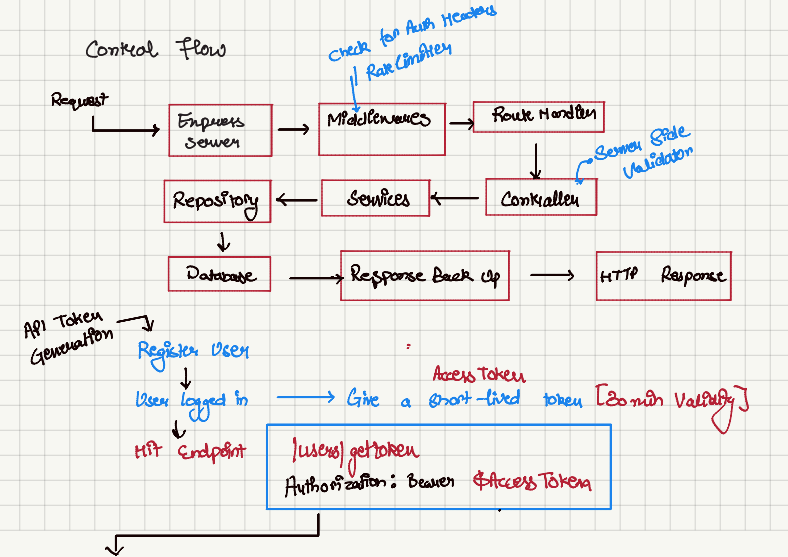 Control Flow
Check for Auth Headers
Rate Limiter
Request
Express Server
Middlewares
Route Handler
Server Side Validator
Controller
Services
Repository
Database
Response Back Up
HTTP Response
API Token Generation
Register User
User logged in
Give a short-lived token [30 min Validity]
Access Token
Hit Endpoint
/users/gettoken
Authorization: Bearer $Access Token